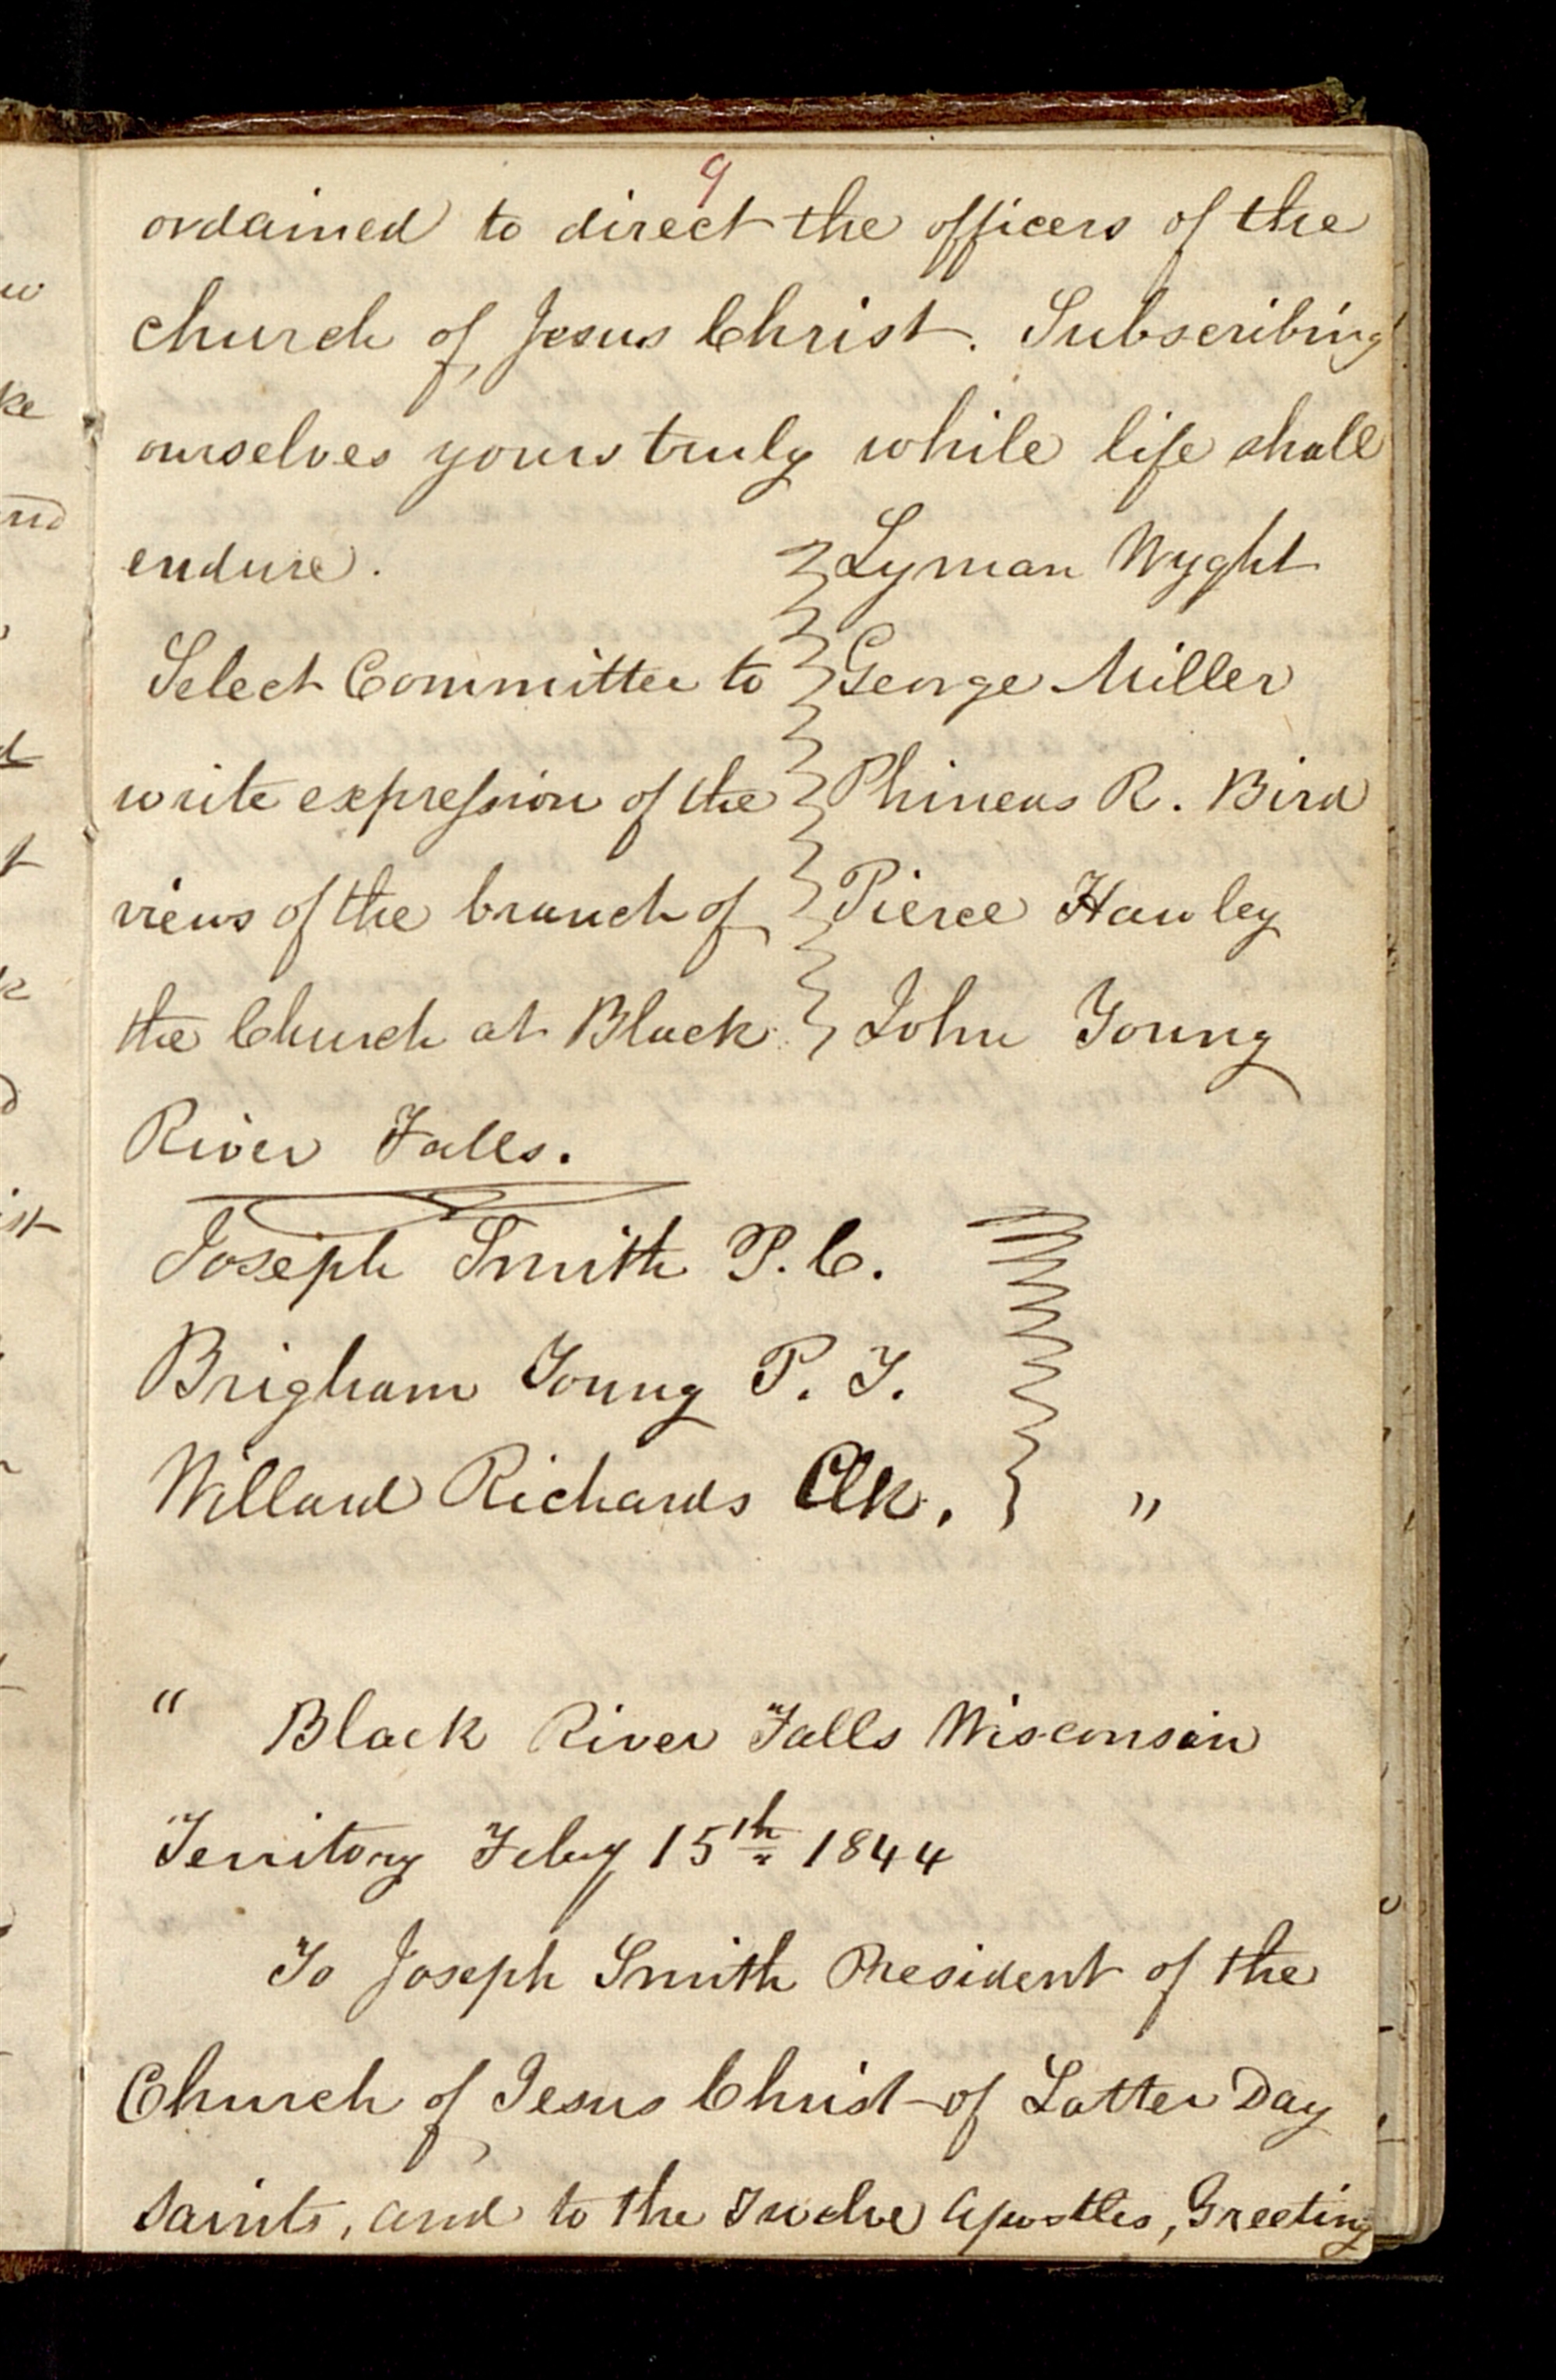 9
ordained to direct the officers of the
church of Jesus Christ. Subscribing
ourselves yours truly while life shall
endure. Lyman Wyght
Select Committee to George Miller
write expression of the Phineas R. Bird
views of the branch of Pierce Hawley
the Church at Black John Young
River Falls.
Joseph Smith P. C.
Brigham Young P. T.
Willard Richards Clk. "
" Black River Falls Wisconsin
Territory Feby 15th 1844
To Joseph Smith President of the
Church of Jesus Christ of Latter Day
saints, and to the Twelve Apostles, Greeting